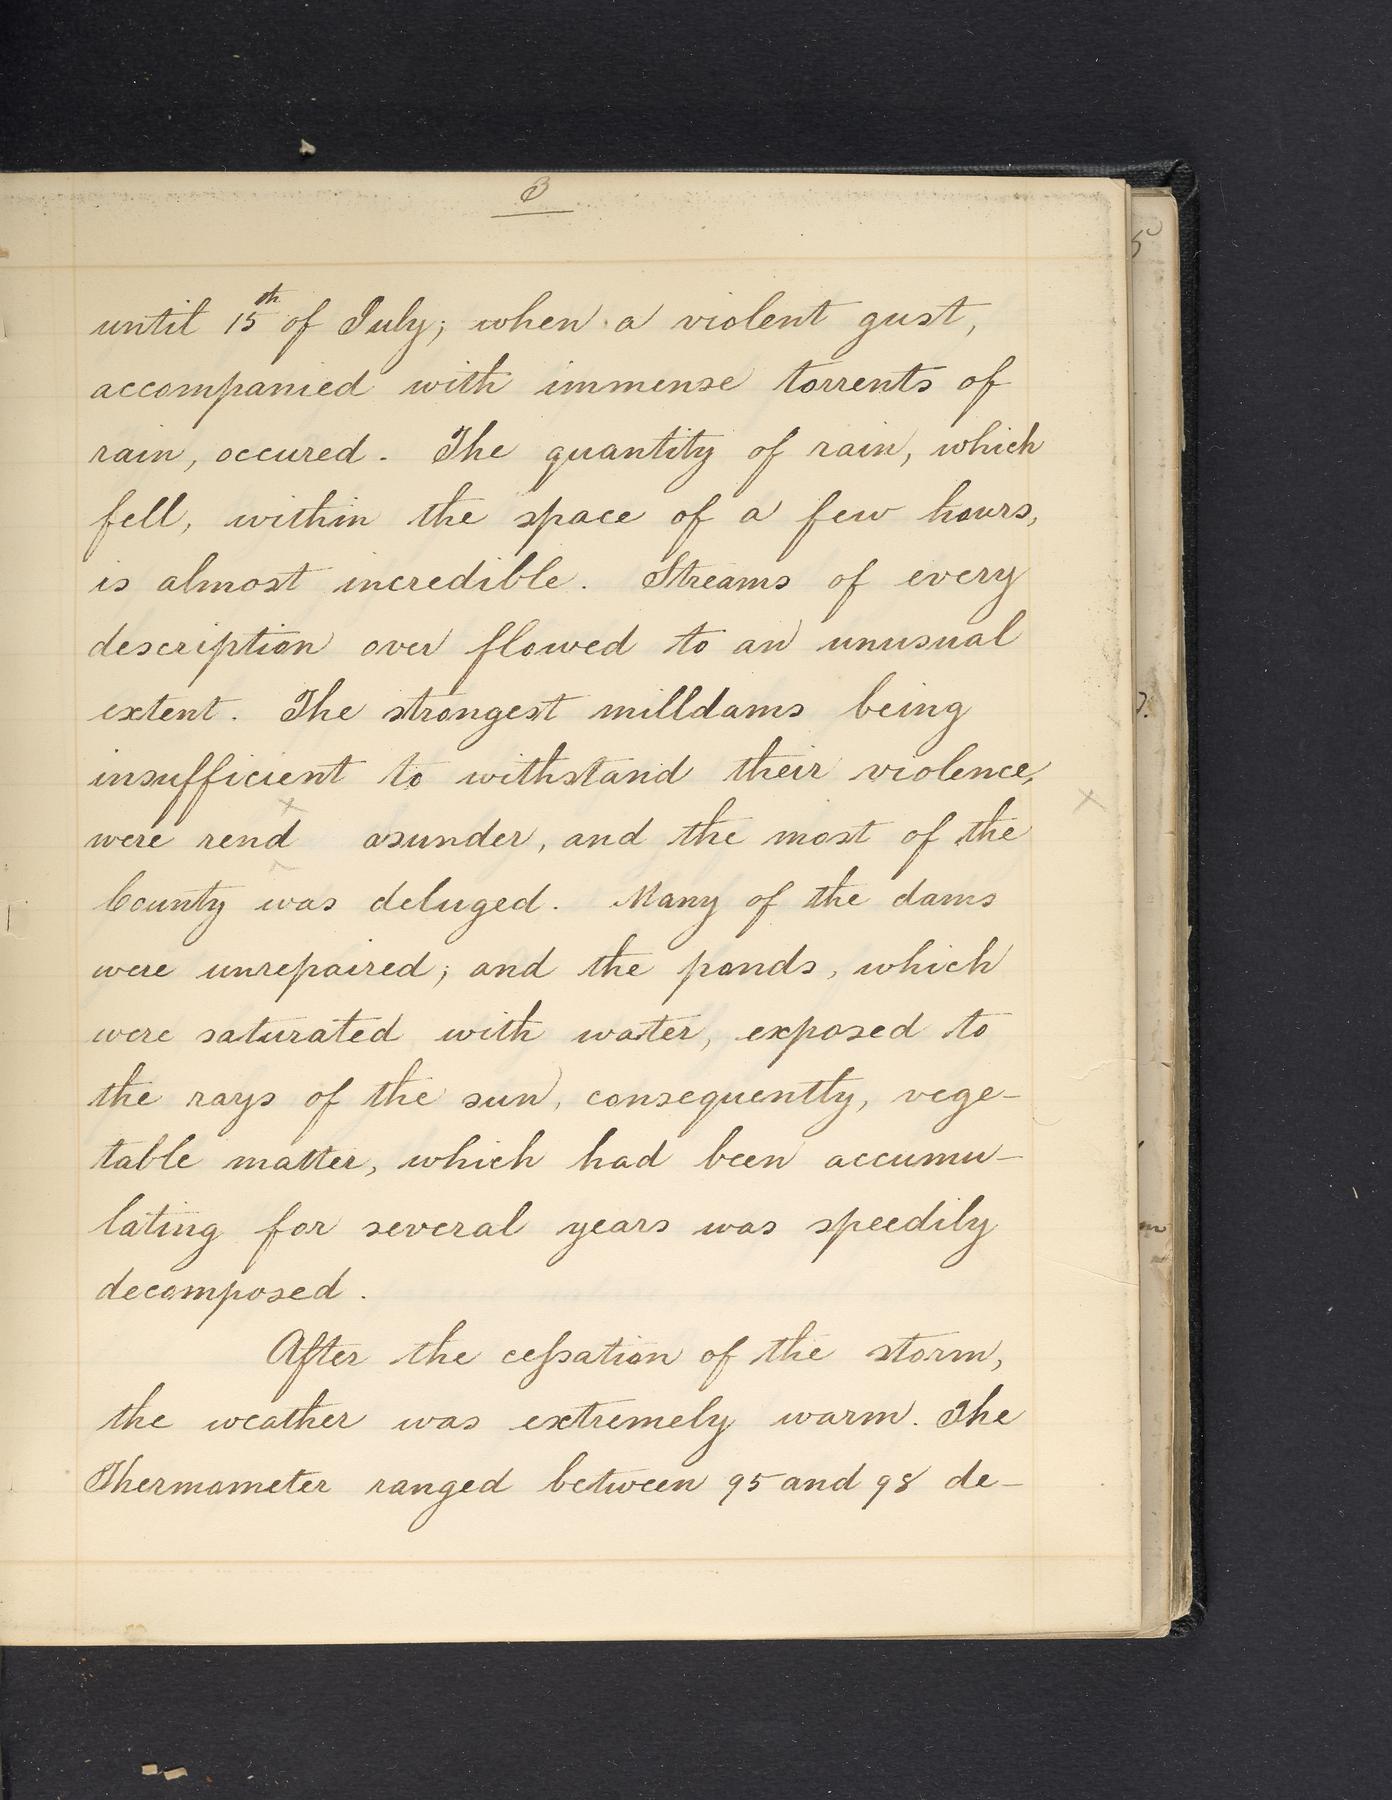 3
until 15th of July; when a violent gust,
accompanied with immense torrents of
rain, occured. The quantity of rain, which
fell, within the space of a few hours,
is almost incredible. Streams of every
description over flowed to an unusual
extent. The strongest milldams being
insufficient to withstand their violence,
x x
were rend asunder, and the most of the
County was deluged. Many of the dams
were unrepaired; and the ponds, which
were saturated with water, exposed to
the rays of the sun, consequently, vege-
table matter, which had been accumu-
lating for several years was speedily
decomposed.
After the ceſsation of the storm,
the weather was extremely warm. The
Thermometer ranged between 95 and 98 de-